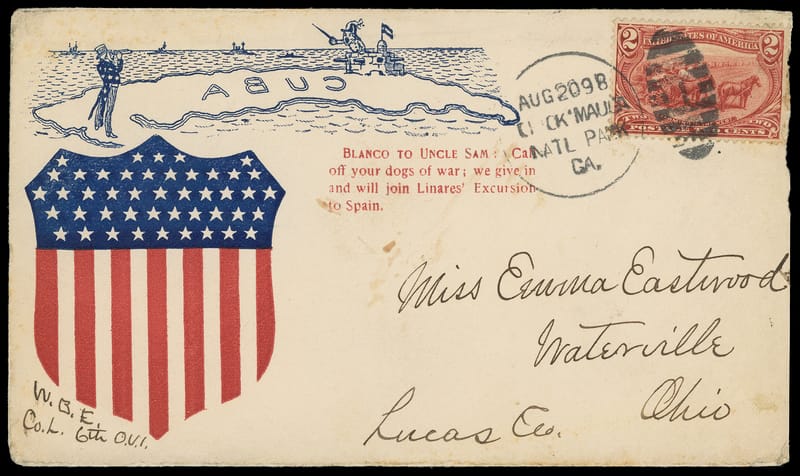 CUBA
2 UNITED STATES OF AMERICA 2
CENTS
AUG 20 98
NATL PARK
GA.
BLANCO TO UNCLE SAM: Call
off your dogs of war; we give in
and will join Linares' Excursion
to Spain.
Miss Emma Eastwood
Waterville
Ohio
Lucas Co.
W. B. E.
Co. L. 6th O.V.I.